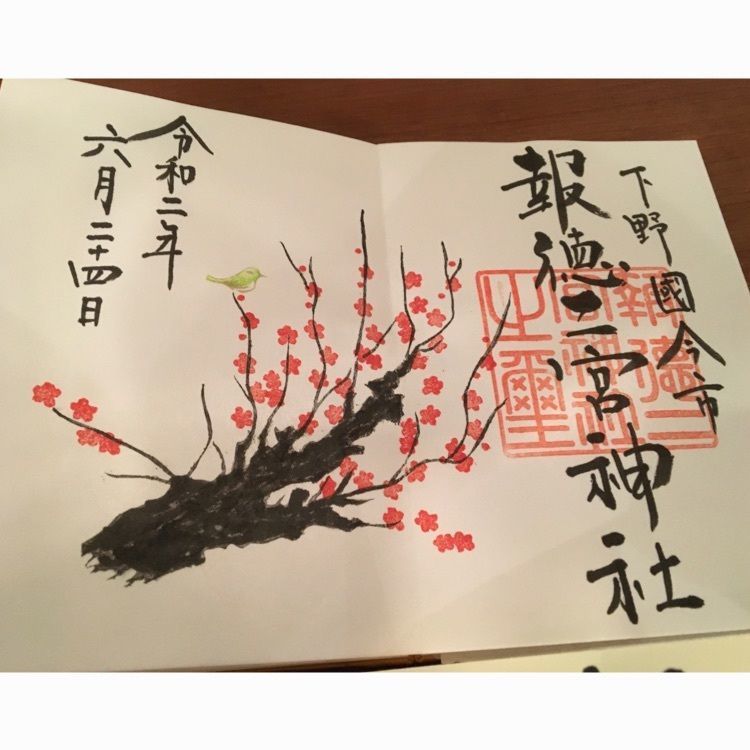 下野國今市
報徳二宮神社
報徳二
宮神社
之璽
令和二年
六月二十四日